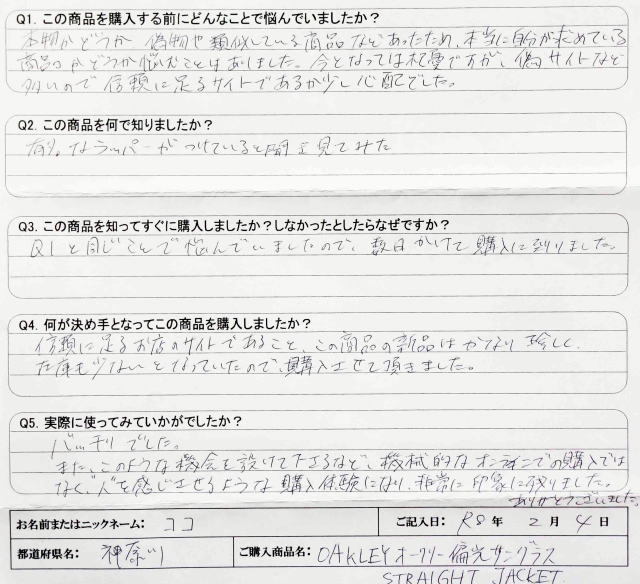 Q1. この商品を購入する前にどんなことで悩んでいましたか？
本物かどうか 偽物や類似している商品などあったため、本当に自分が求めている
商品かどうか悩むことはありました。今となっては杞憂ですが、偽サイトなど
多いので信頼に足るサイトであるか少し心配でした。
Q2. この商品を何で知りましたか？
有名なラッパーがつけていると聞き見てみた
Q3. この商品を知ってすぐに購入しましたか？しなかったとしたらなぜですか？
Q1と同じことで悩んでいましたので、数日かけて購入に到りました。
Q4. 何が決め手となってこの商品を購入しましたか？
信頼に足るお店のサイトであること、この商品の新品はかなり珍しく、
在庫も少ないとなっていたので、購入させて頂きました。
Q5. 実際に使ってみていかがでしたか？
バッチリでした。
また、このような機会を設けて下さるなど、機械的なオンラインでの購入では
なく、"人"を感じさせるような購入体験になり、非常に印象に残りました。
ありがとうございました。
お名前またはニックネーム： ココ ご記入日： R8年 2月 4日
都道府県名： 神奈川 ご購入商品名： OAKLEY オークリー 偏光サングラス
STRAIGHT JACKET